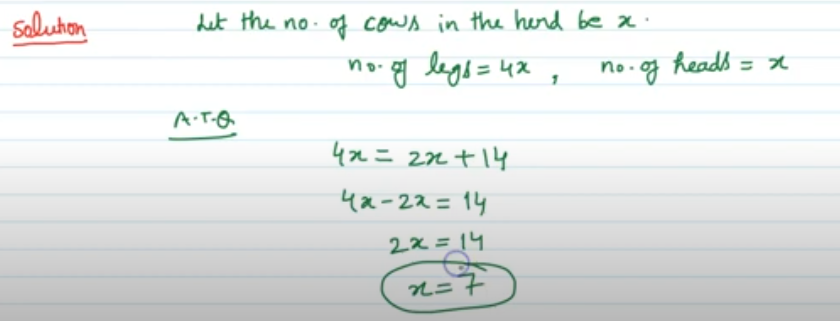 Solution Let the no. of cows in the herd be x.
no. of legs = 4x , no. of heads = x
A.T.Q
4x = 2x + 14
4x - 2x = 14
2x = 14
x = 7